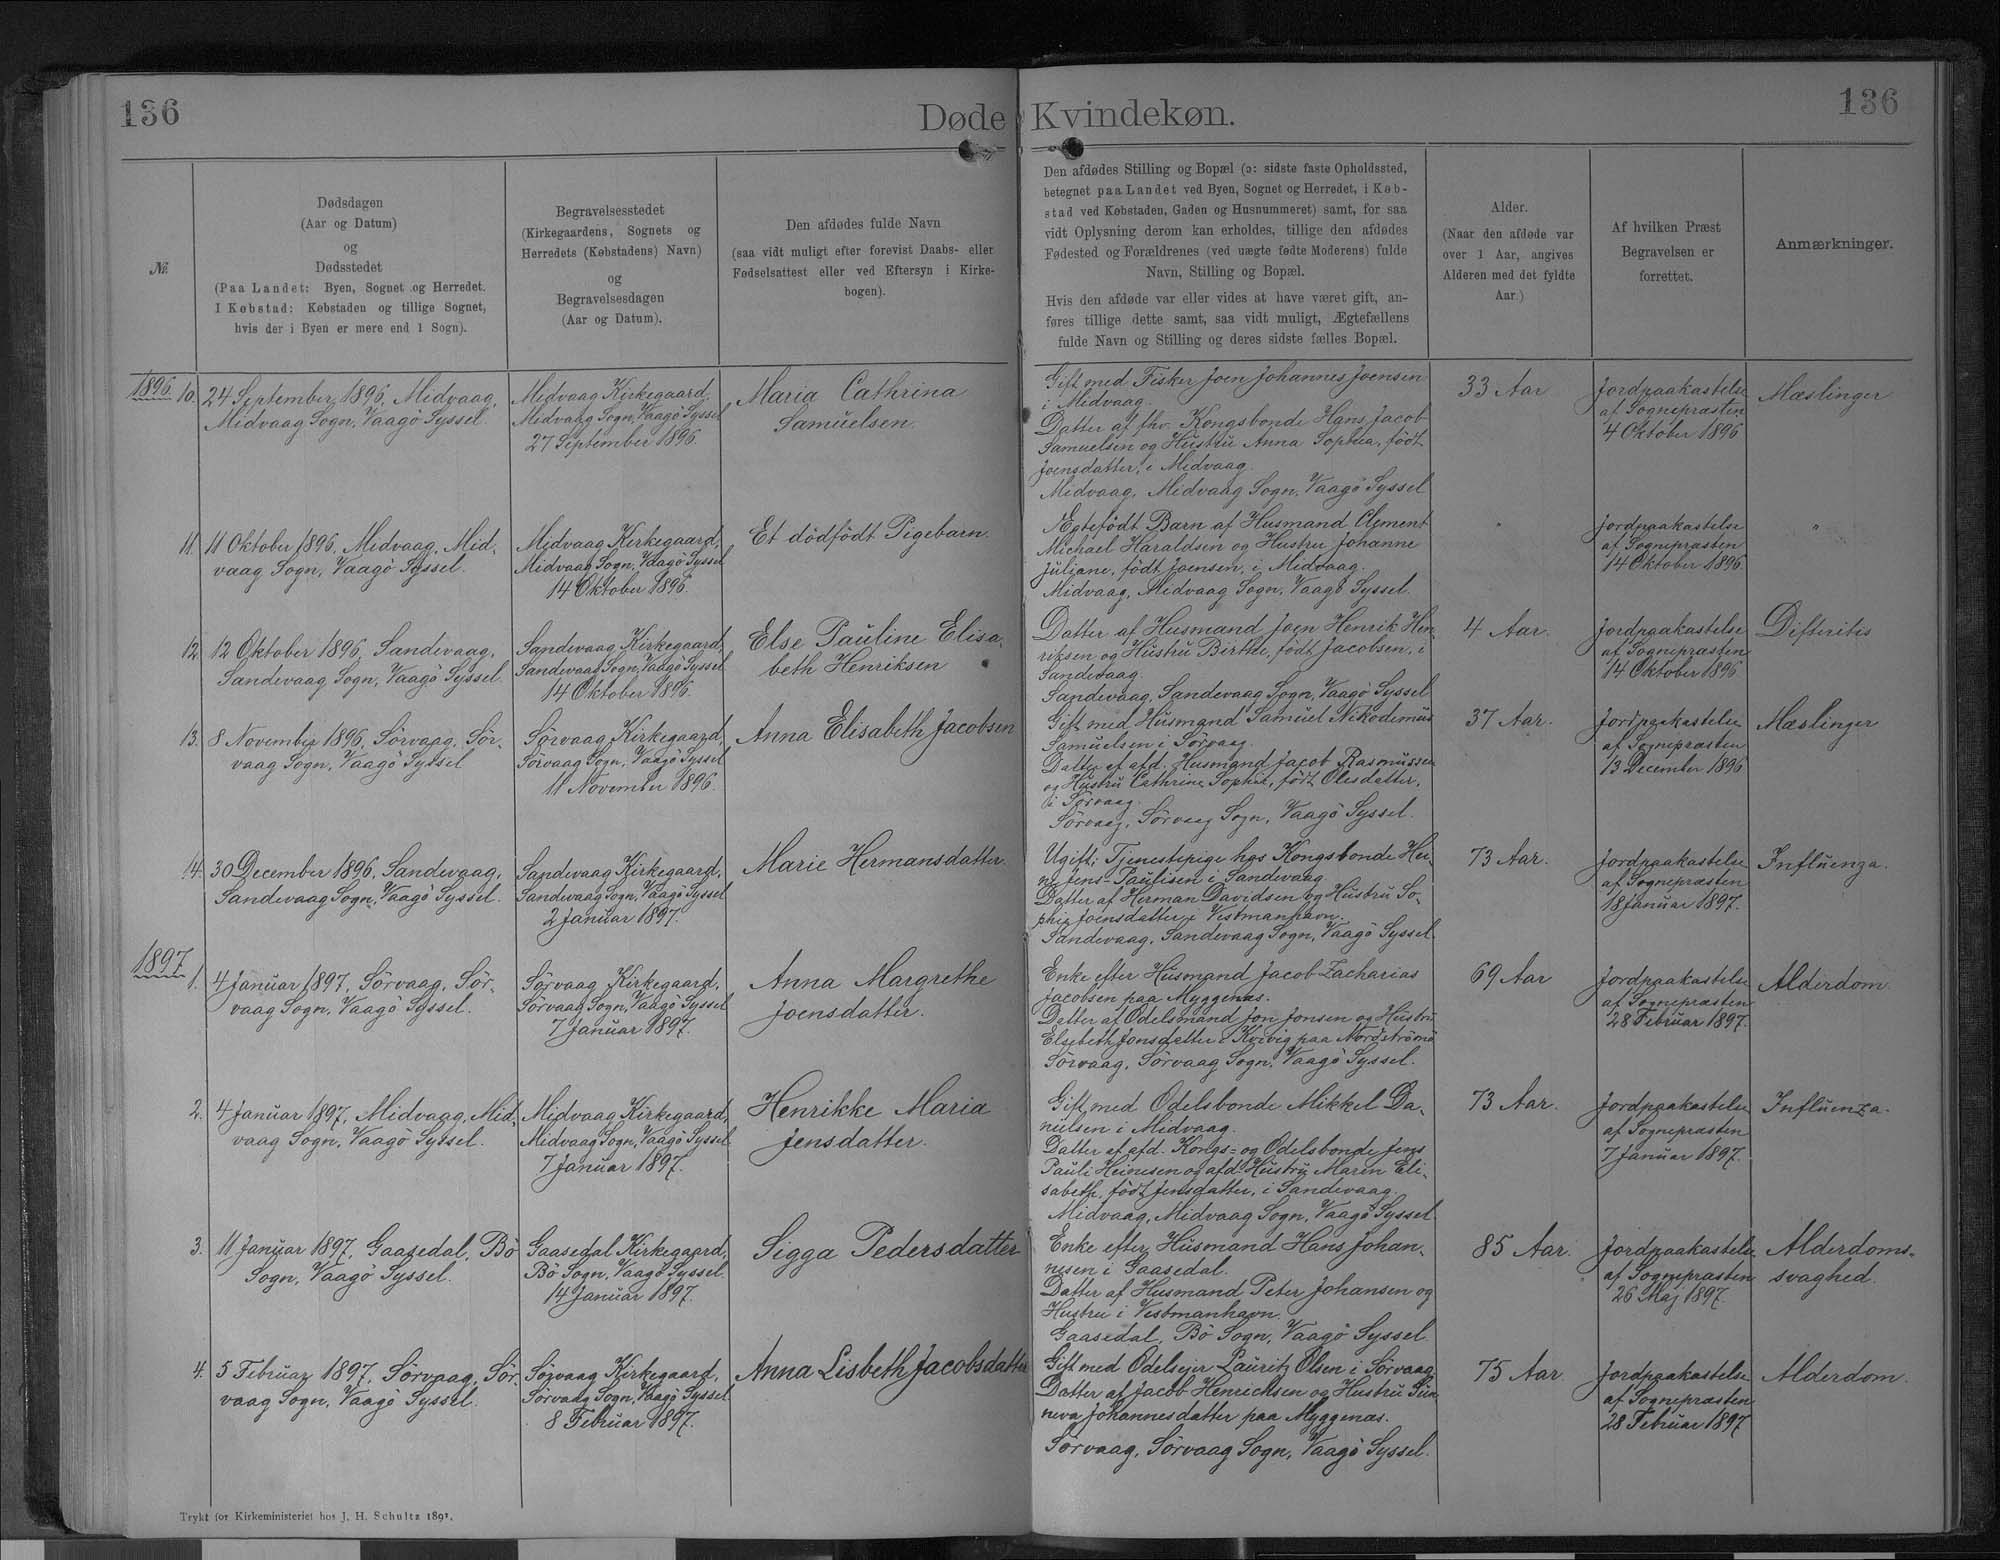 136
Døde Kvindekøn.
136
№
Dødsdagen
(Aar og Datum)
og
Dødsstedet
(Paa Landet: Byen, Sognet og Herredet.
I Købstad: Købstaden og tillige Sognet,
hvis der i Byen er mere end 1 Sogn).
Begravelsesstedet
(Kirkegaardens, Sognets og
Herredets (Købstadens) Navn)
og
Begravelsesdagen
(Aar og Datum).
Den afdødes fulde Navn
(saa vidt muligt efter forevist Daabs- eller
Fødselsattest eller ved Eftersyn i Kirke-
bogen).
Den afdødes Stilling og Bopæl (ɔ: sidste faste Opholdssted,
betegnet paa Landet ved Byen, Sognet og Herredet, i Køb-
stad ved Købstaden, Gaden og Husnummeret) samt, for saa
vidt Oplysning derom kan erholdes, tillige den afdødes
Fødested og Forældrenes (ved uægte fødte Moderens) fulde
Navn, Stilling og Bopæl.
Hvis den afdøde var eller vides at have været gift, an-
føres tillige dette samt, saa vidt muligt, Ægtefællens
fulde Navn og Stilling og deres sidste fælles Bopæl.
Alder.
(Naar den afdøde var
over 1 Aar, angives
Alderen med det fyldte
Aar.)
Af hvilken Præst
Begravelsen er
forrettet.
Anmærkninger.
1896. 10.
24 September 1896, Midvaag,
Midvaag Sogn, Vaagö Syssel.
Midvaag Kirkegaard,
Midvaag Sogn, Vaagö Syssel
27 September 1896.
Maria Cathrina
Samuelsen.
Gift med Fisker Joen Johannes Joensen
i Midvaag.
Datter af fhv. Kongsbonde Hans Jacob
Samuelsen og Hustru Anna Sophia, født
Joensdatter, i Midvaag.
Midvaag, Midvaag Sogn, Vaagö Syssel
33 Aar
Jordpaakastelse
af Sognepræsten
4 Oktober 1896
Mæslinger
11.
11 Oktober 1896, Midvaag, Mid-
vaag Sogn, Vaagö Syssel.
Midvaag Kirkegaard,
Midvaag Sogn, Vaagö Syssel
14 Oktober 1896.
Et dödfödt Pigebarn.
Ægtefödt Barn af Husmand Clement
Michael Haraldsen og Hustru Johanne
Juliane, födt Joensen, i Midvaag.
Midvaag, Midvaag Sogn, Vaagö Syssel.
"
Jordpaakastelse
af Sognepræsten
14 Oktober 1896.
"
12.
12 Oktober 1896, Sandevaag,
Sandevaag Sogn, Vaagö Syssel.
Sandevaag Kirkegaard,
Sandevaag Sogn, Vaagö Syssel
14 Oktober 1896.
Else Pauline Elisa-
beth Henriksen
Datter af Husmand Joen Henrik Hen-
riksen og Hustru Birthe, födt Jacobsen, i
Sandevaag.
Sandevaag, Sandevaag Sogn, Vaagö Syssel
4 Aar.
Jordpaakastelse
af Sognepræsten
14 Oktober 1896
Difteritis
13.
8 November 1896, Sörvaag, Sör-
vaag Sogn, Vaagö Syssel
Sörvaag Kirkegaard,
Sörvaag Sogn, Vaagö Syssel
11 November 1896.
Anna Elisabeth Jacobsen
Gift med Husmand Samuel Nikodemus
Samuelsen i Sörvaag.
Datter af afd. Husmand Jacob Rasmussen
og Hustru Cathrine Sophie, födt Olesdatter,
i Sörvaag.
Sörvaag, Sörvaag Sogn, Vaagö Syssel.
37 Aar.
Jordpaakastelse
af Sognepræsten
13 December 1896
Mæslinger
14.
30 December 1896, Sandevaag,
Sandevaag Sogn, Vaagö Syssel.
Sandevaag Kirkegaard,
Sandevaag Sogn, Vaagö Syssel
2 Januar 1897.
Marie Hermansdatter.
Ugift; Tjenestepige hos Kongsbonde Hei-
ne Jens Paulisen i Sandevaag.
Datter af Herman Davidsen og Hustru So-
phie Joensdatter i Vestmanhavn.
Sandevaag, Sandevaag Sogn, Vaagö Syssel.
73 Aar.
Jordpaakastelse
af Sognepræsten
18 Januar 1897.
Influenza.
1897
1.
4 Januar 1897, Sörvaag, Sör-
vaag Sogn, Vaagö Syssel.
Sörvaag Kirkegaard,
Sörvaag Sogn, Vaagö Syssel
7 Januar 1897.
Anna Margrethe
Joensdatter.
Enke efter Husmand Jacob Zacharias
Jacobsen paa Myggenæs.
Datter af Odelsmand Jon Jonsen og Hustru
Elsebeth Jonsdatter i Kvivig paa Nordströmö
Sörvaag, Sörvaag Sogn, Vaagö Syssel.
69 Aar
Jordpaakastelse
af Sognepræsten
28 Februar 1897.
Alderdom.
2.
4 Januar 1897, Midvaag, Mid-
vaag Sogn, Vaagö Syssel.
Midvaag Kirkegaard,
Midvaag Sogn, Vaagö Syssel
7 Januar 1897.
Henrikke Maria
Jensdatter.
Gift med Odelsbonde Mikkel Da-
nielsen i Midvaag.
Datter af afd. Kongs- og Odelsbonde Jens
Pauli Heinesen og afd. Hustru Maren Eli-
sabeth, födt Jensdatter, i Sandevaag.
Midvaag, Midvaag Sogn, Vaagö Syssel.
73 Aar.
Jordpaakastelse
af Sognepræsten
7 Januar 1897.
Influenza.
3.
11 Januar 1897, Gaasedal, Bö
Sogn, Vaagö Syssel.
Gaasedal Kirkegaard,
Bö Sogn, Vaagö Syssel.
14 Januar 1897.
Sigga Pedersdatter
Enke efter Husmand Hans Johan-
nesen i Gaasedal.
Datter af Husmand Peter Johansen og
Hustru i Vestmanhavn.
Gaasedal, Bö Sogn, Vaagö Syssel
85 Aar.
Jordpaakastelse
af Sognepræsten
26 Maj 1897.
Alderdoms-
svaghed.
4.
5 Februar 1897, Sörvaag, Sör-
vaag Sogn, Vaagö Syssel.
Sörvaag Kirkegaard,
Sörvaag Sogn, Vaagö Syssel
8 Februar 1897.
Anna Lisbeth Jacobsdatter
Gift med Odelsejer Lauritz Olsen i Sörvaag
Datter af Jacob Henrichsen og Hustru Sun-
neva Johannesdatter paa Myggenæs.
Sörvaag, Sörvaag Sogn, Vaagö Syssel.
75 Aar.
Jordpaakastelse
af Sognepræsten
28 Februar 1897
Alderdom.
Trykt for Kirkeministeriet hos J. H. Schultz 1891.